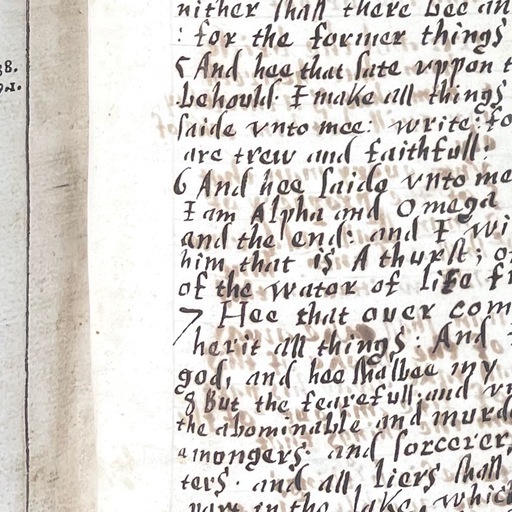 nither shall there bee an
: for the former things
38.
5 And hee that sate vppon t
91.
behould. I make all things
saide vnto mee: write: fo
are trew and faithfull:
6 And hee saide vnto me
I am Alpha and Omega
and the end: and I wi
him that is A thurst; o
of the water of life fr
7 Hee that ouer com
herit all things: And
god, and hee shalbee my
8 But the fearefull, and vn
the abominable and murd
amongers. and sorcerer,
ters. and all liers shall
part in the lake, which